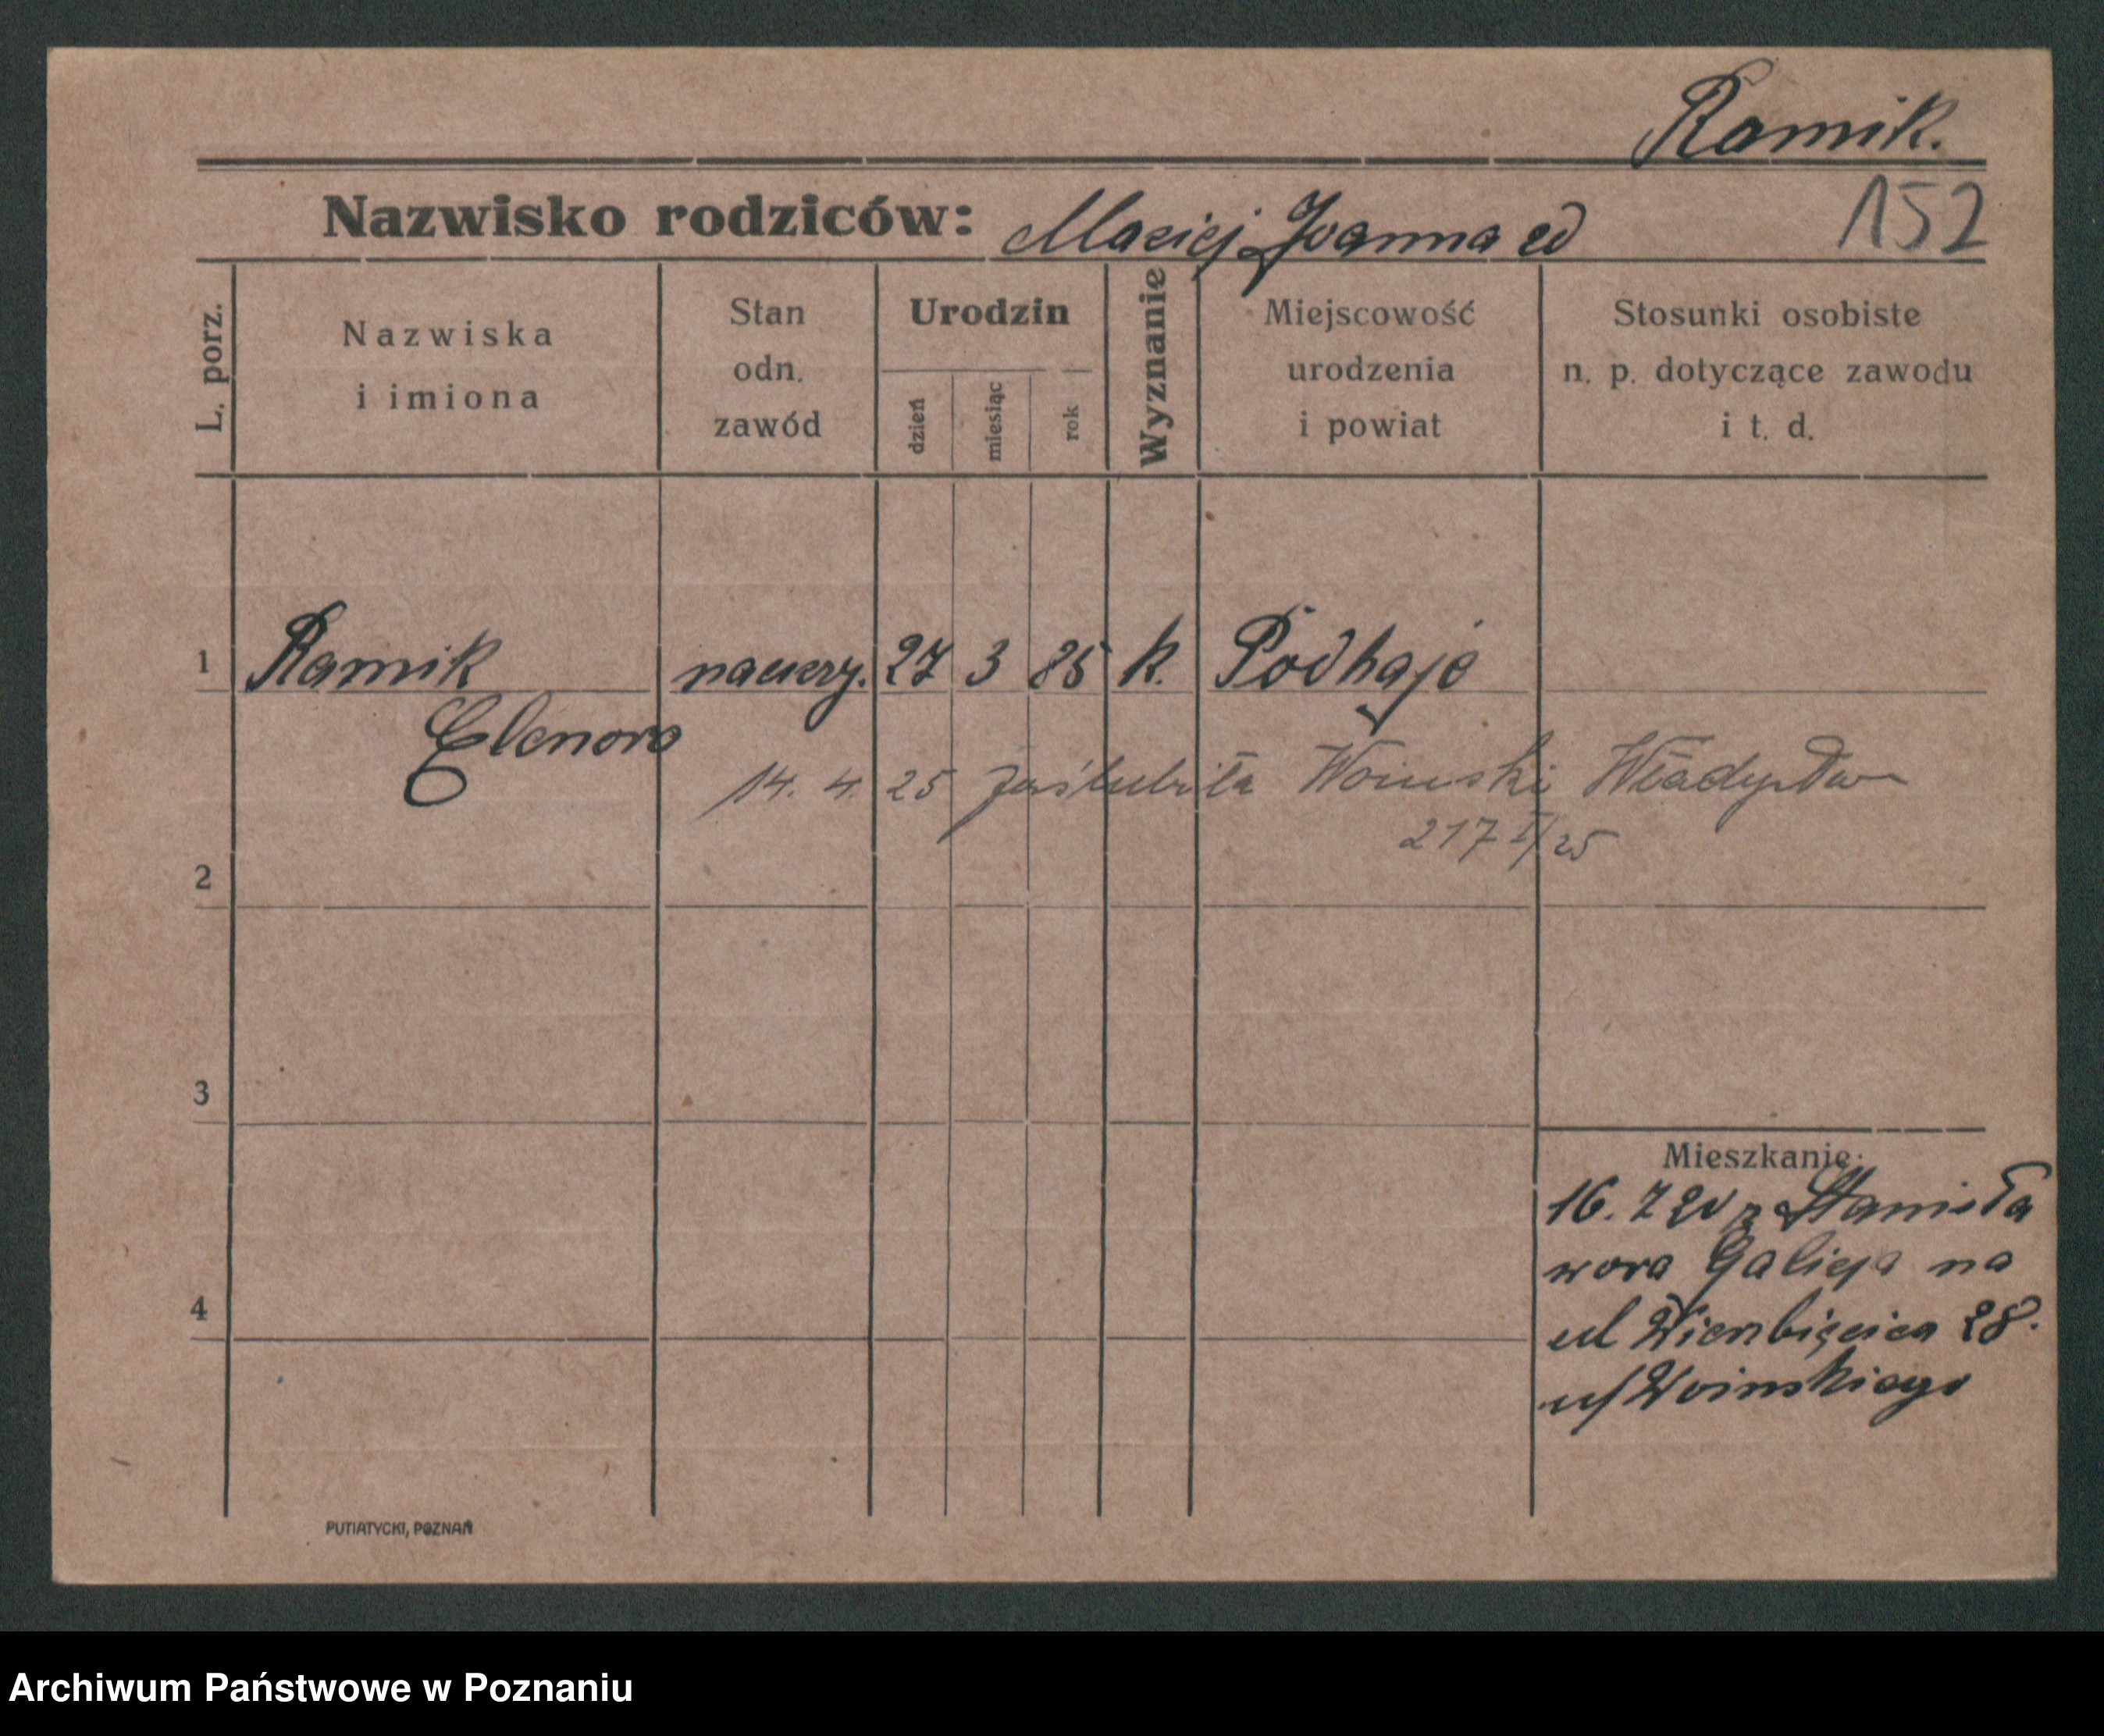 Ramik.
Nazwisko rodziców: Maciej Joanna
152
L. porz.
Nazwiska
i imiona
Stan
odn.
zawód
Urodzin
dzień
miesiąc
rok
Wyznanie
Miejscowość
urodzenia
i powiat
Stosunki osobiste
n. p. dotyczące zawodu
i t. d.
1 Ramik nauczy. 27 3 85 k. Podhaje
Elenora
14. 4. 25 zaślubiła Woinski Władysław
217 I/25
2
3
4
Mieszkanie:
16. 7 20 z Stanisła
wowa Galicja na
ul Wierzbięcica 28.
u/Woinskiego
PUTIATYCKI, POZNAŃ
Archiwum Państwowe w Poznaniu